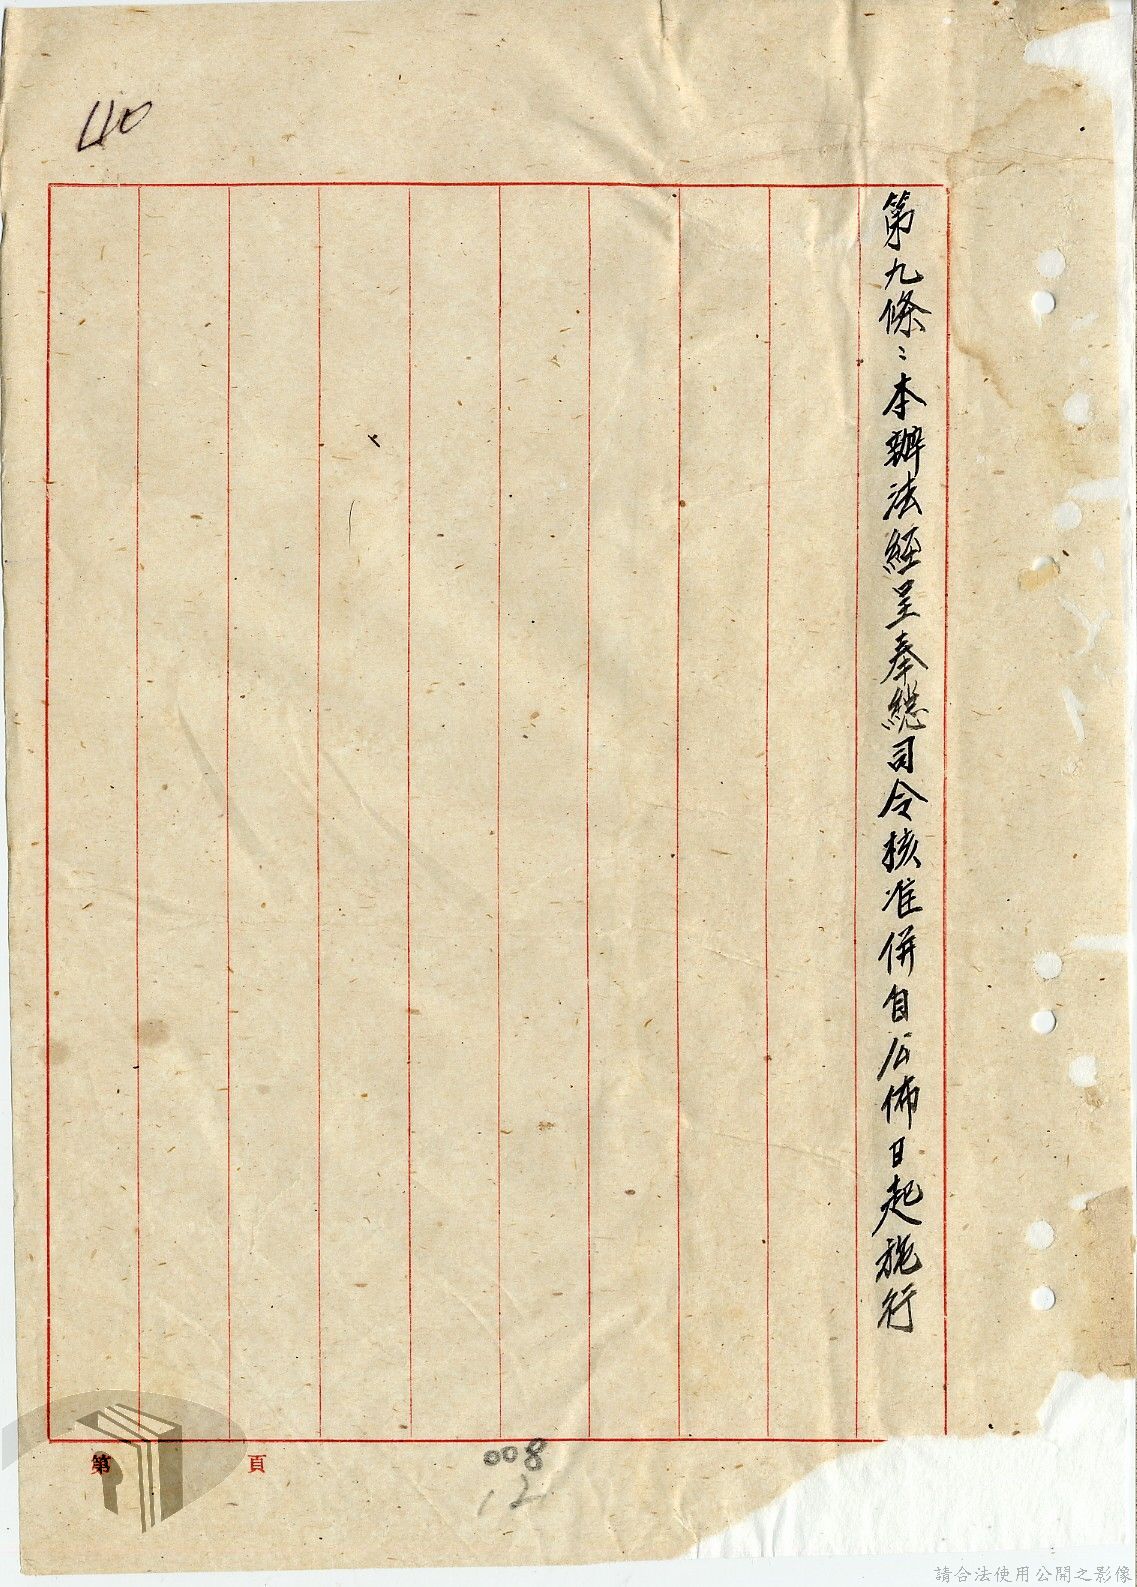 第九條：本辦法經呈奉總司令核准併自公佈日起施行
40
第 頁
008
12
請合法使用公開之影像